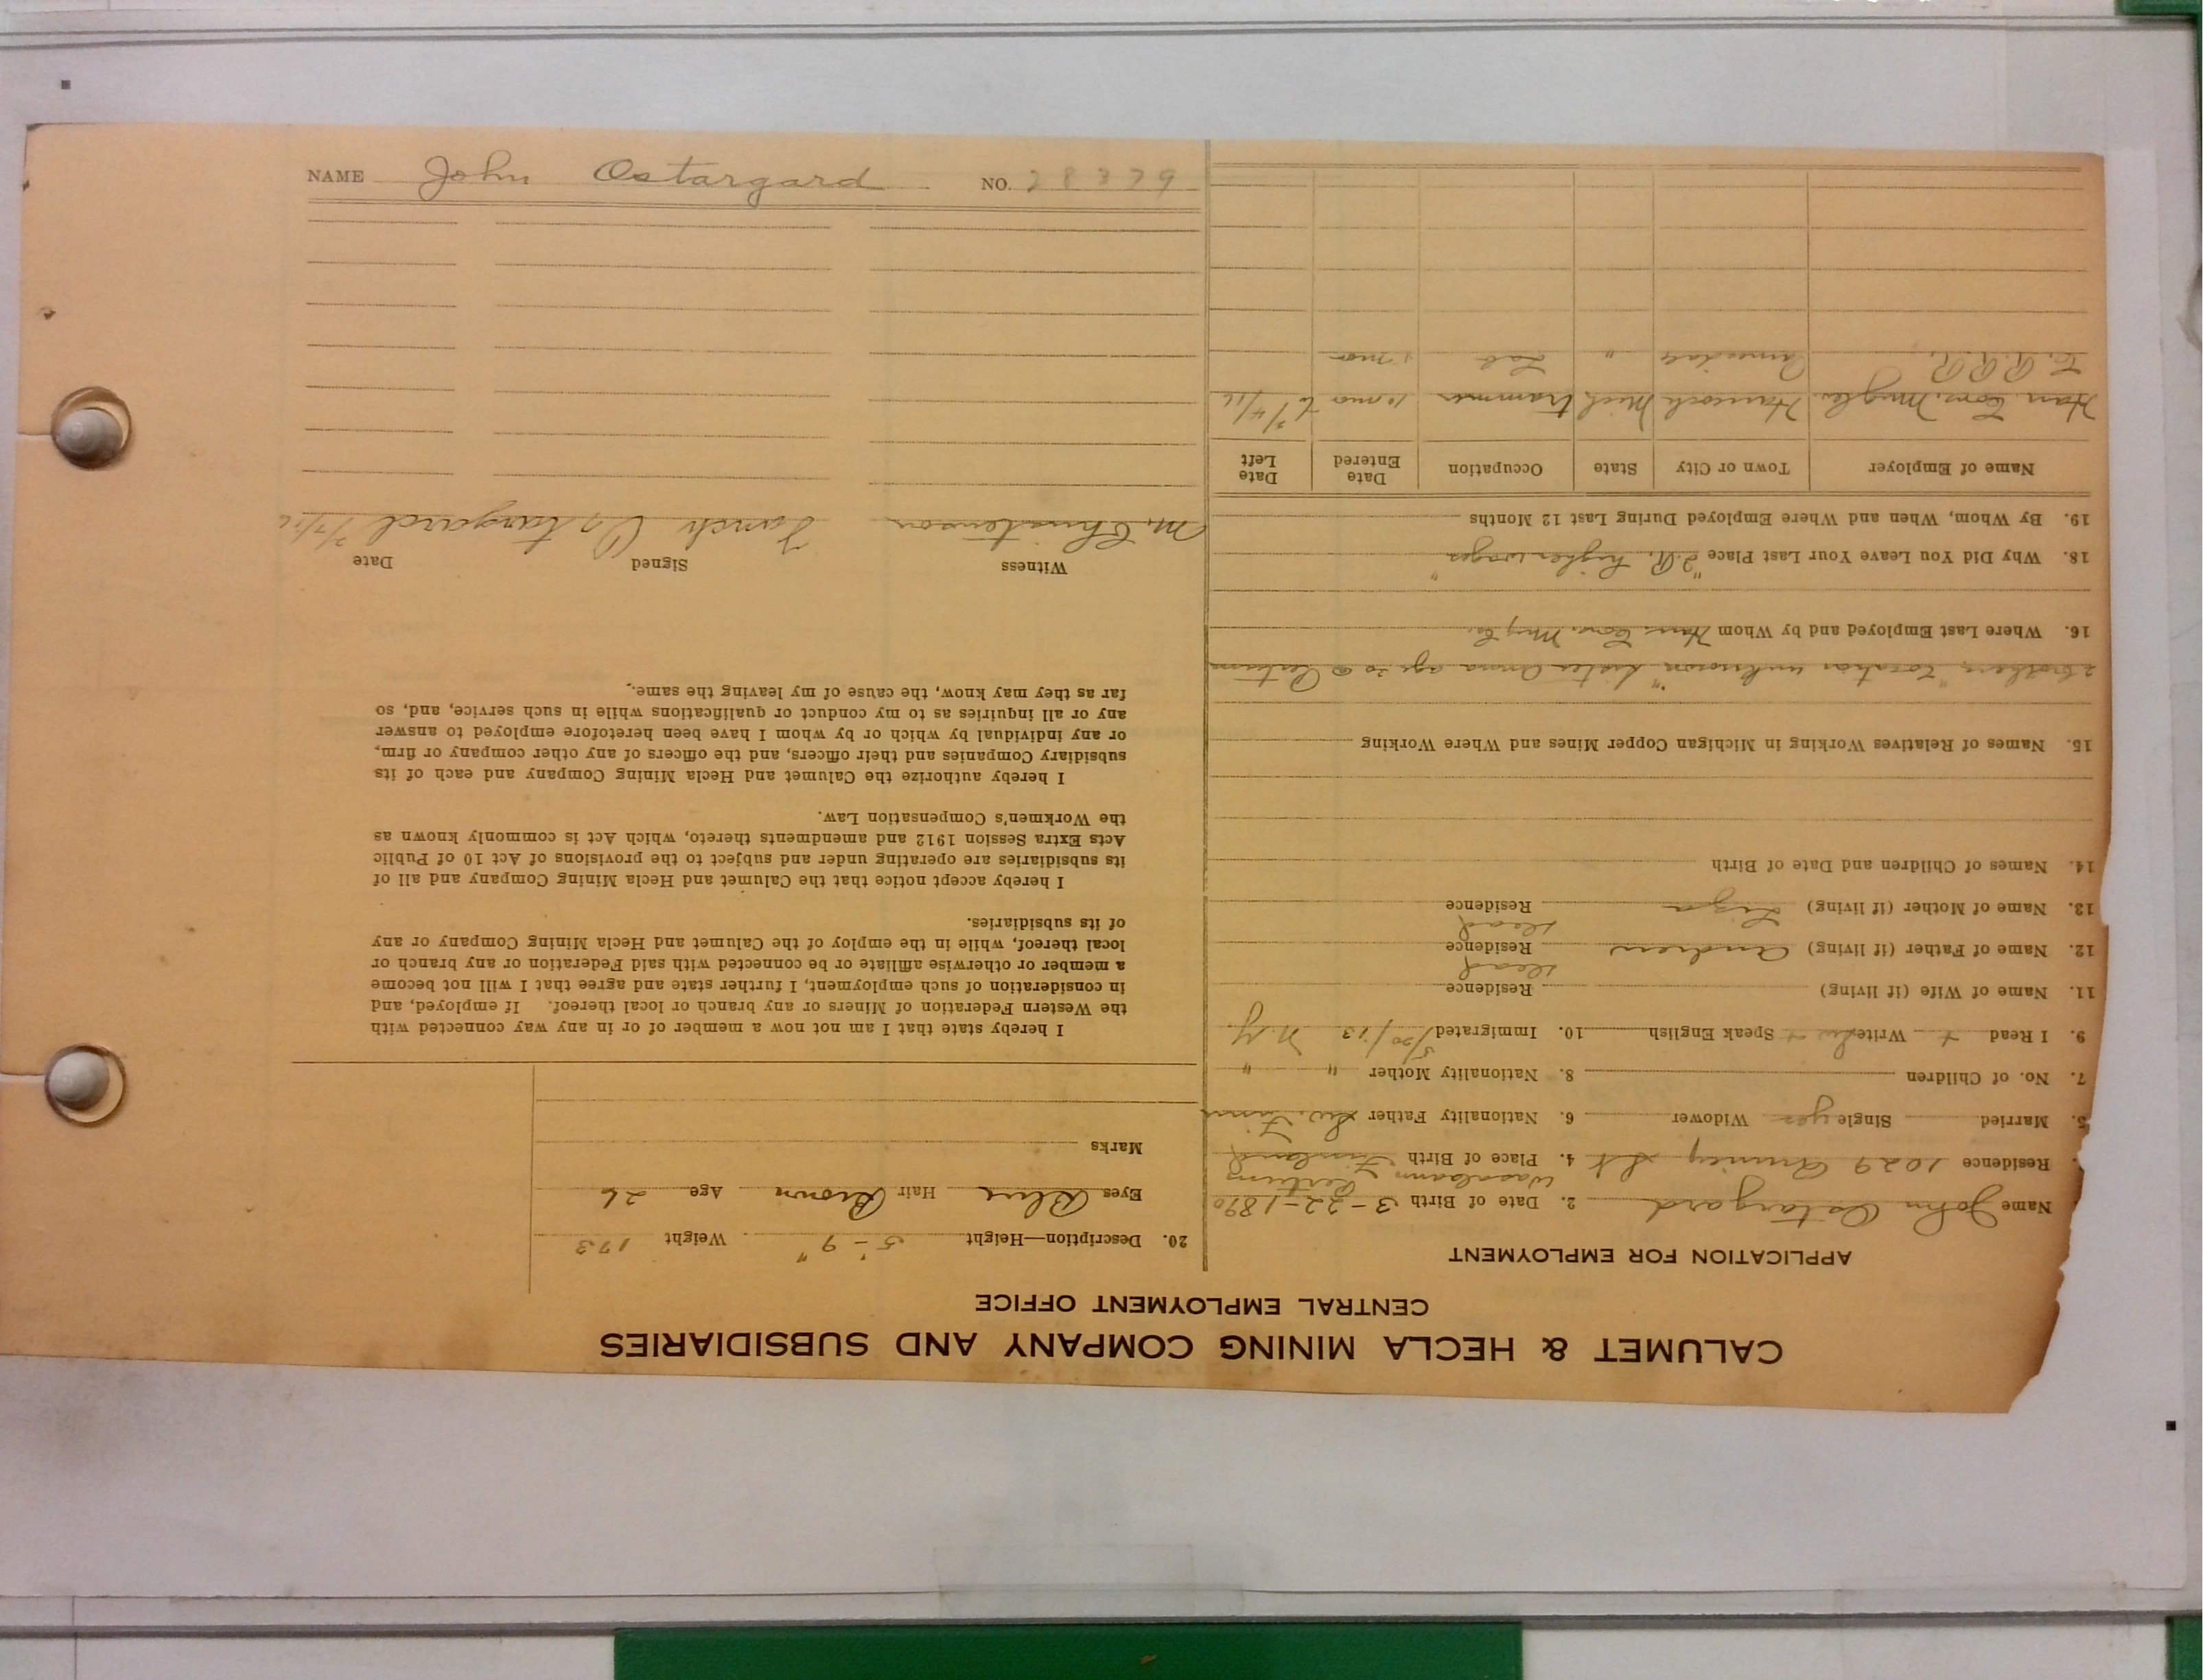 CALUMET & HECLA MINING COMPANY AND SUBSIDIARIES
CENTRAL EMPLOYMENT OFFICE
APPLICATION FOR EMPLOYMENT
Name John Ostargard 2. Date of Birth 3-22-1890
Residence 1029 St 4. Place of Birth Finland
5. Married Single yes Widower 6. Nationality Father Sw. Finn
7. No. of Children 8. Nationality Mother " "
9. I Read + Write Speak English 10. Immigrated 5/20/13 N.Y.
11. Name of Wife (if living) Residence
12. Name of Father (if living) Andrew Residence dead
13. Name of Mother (if living) Residence dead
14. Names of Children and Date of Birth
15. Names of Relatives Working in Michigan Copper Mines and Where Working
2 brothers "Location unknown" Sister Anna age 20 @
16. Where Last Employed and by Whom Han. Con. Mng Co.
18. Why Did You Leave Your Last Place "2.R. higher wages"
19. By Whom, When and Where Employed During Last 12 Months
Name of Employer Town or City State Occupation Date Entered Date Left
Han. Con. Mng Co. Hancock Mich trammer 10 mo
C.R.R.R. " Lab mos
20. Description—Height 5'-9" Weight 173
Eyes Blue Hair Brown Age 26
Marks
I hereby state that I am not now a member of or in any way connected with
the Western Federation of Miners or any branch or local thereof. If employed, and
in consideration of such employment, I further state and agree that I will not become
a member or otherwise affiliate or be connected with said Federation or any branch or
local thereof, while in the employ of the Calumet and Hecla Mining Company or any
of its subsidiaries.
I hereby accept notice that the Calumet and Hecla Mining Company and all of
its subsidiaries are operating under and subject to the provisions of Act 10 of Public
Acts Extra Session 1912 and amendments thereto, which Act is commonly known as
the Workmen's Compensation Law.
I hereby authorize the Calumet and Hecla Mining Company and each of its
subsidiary Companies and their officers, and the officers of any other company or firm,
or any individual by which or by whom I have been heretofore employed to answer
any or all inquiries as to my conduct or qualifications while in such service, and, so
far as they may know, the cause of my leaving the same.
Witness Signed Date
M. Christenson Ostargard 7/7/16
NAME John Ostargard NO. 28379